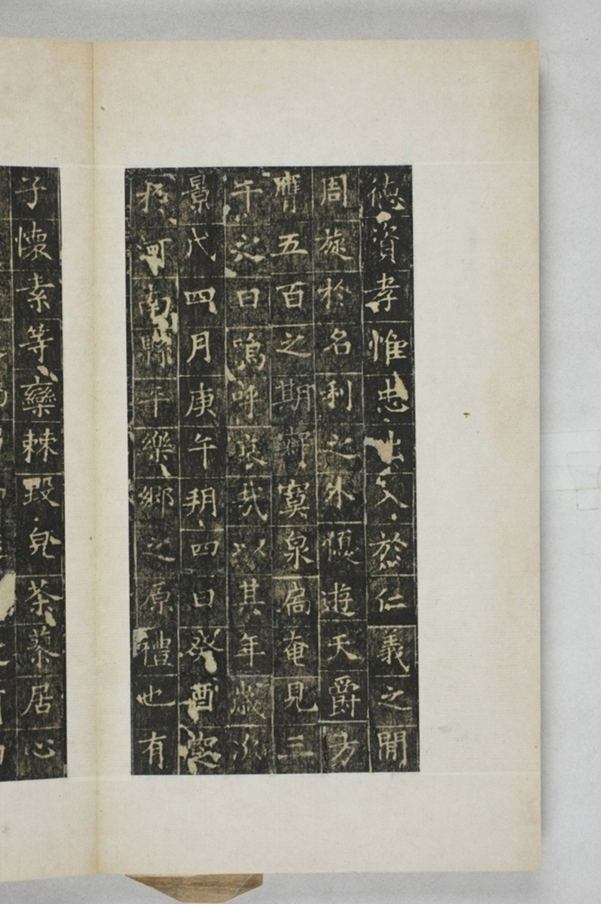 德資孝惟忠出入於仁義之間
周旋於名利之外優遊天爵方
膺五百之期寘泉扃奄見三
千之日嗚呼哀哉以其年歲次
景戌四月庚午朔四日癸酉窆
於河南縣平樂鄉之原禮也有
子懷素等欒棘毀皃荼蓼居心